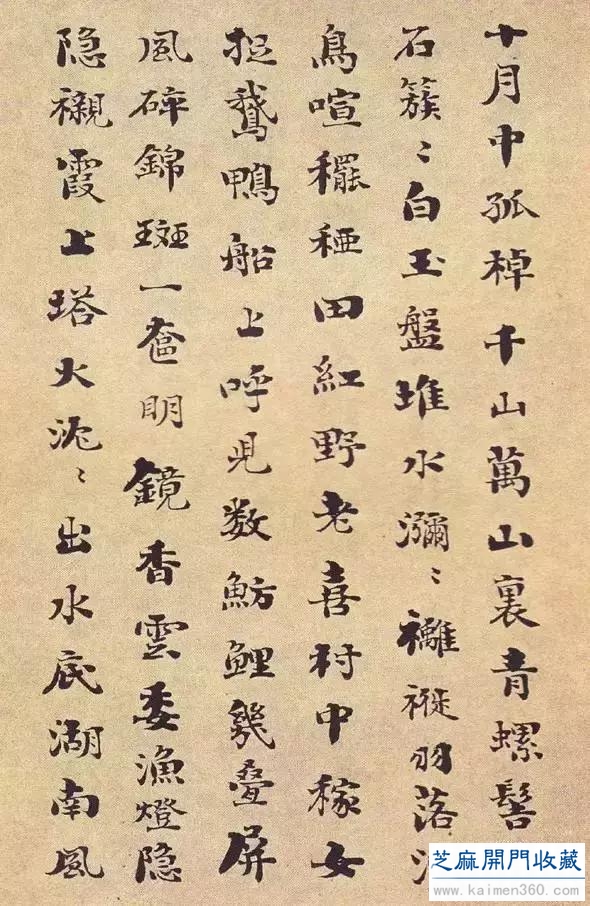 十月中孤棹千山萬山裏青螺髻
石簇〻白玉盤堆水瀰〻褵褷羽落
鳥喧䆉稏田紅野老喜村中稼女
捉鵝鴨船上呼児数魴鯉幾疊屏
風碎錦斑一奩明鏡香雲委漁燈隐
隐襯霞上塔火沉〻出水底湖南風
芝麻開門收藏
www.kaimen360.com